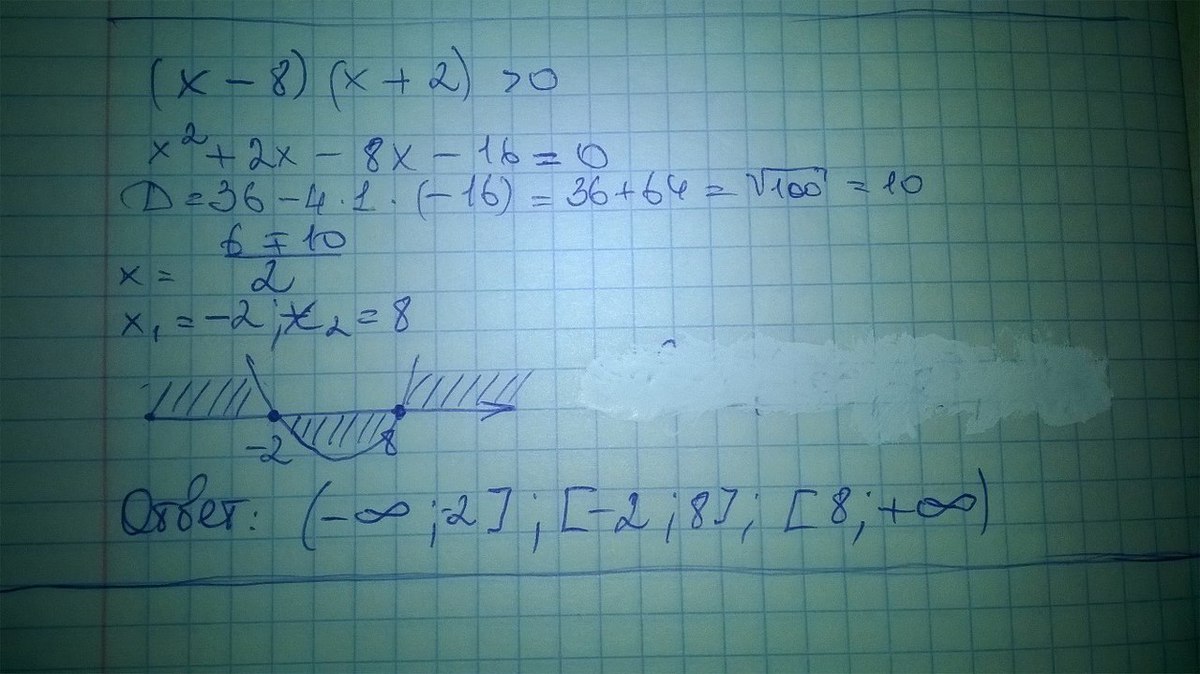 (x - 8) (x + 2) > 0
x² + 2x - 8x - 16 = 0
D = 36 - 4 · 1 · (-16) = 36 + 64 = √100 = 10
x = (6 ∓ 10)/2
x₁ = -2 ; x₂ = 8
-2 8
Ответ: (-∞ ; -2] ; [-2 ; 8] ; [8 ; +∞)